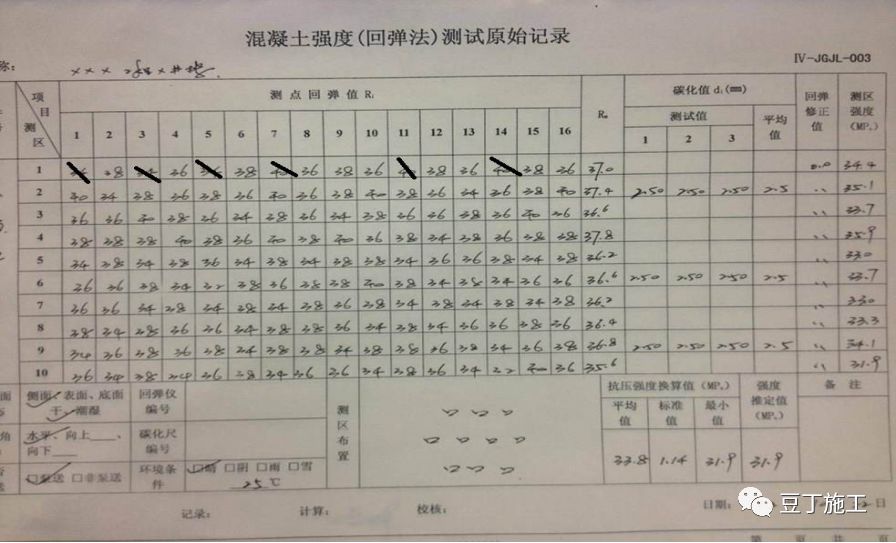 混凝土强度(回弹法)测试原始记录
Ⅳ-JGJL-003
称: ×××
项目 测区 测点回弹值 Rᵢ Rₘ 碳化值 dᵢ(mm) 回弹修正值 测区强度(MPₐ)
测试值 平均值
1 2 3 4 5 6 7 8 9 10 11 12 13 14 15 16 1 2 3
1 38 34 36 38 36 38 36 38 36 38 36 37.0 0.0 34.4
2 40 34 38 36 38 36 40 36 38 40 38 36 34 36 38 40 37.4 2.50 2.50 2.50 2.5 〃 35.1
3 36 36 40 38 36 34 38 36 34 38 36 36 38 36 40 36 36.6 〃 33.7
4 38 38 38 40 38 36 40 38 40 36 38 34 38 36 38 38 37.8 〃 35.9
5 34 38 34 38 36 34 38 34 38 38 34 36 36 38 34 38 36.2 〃 33.0
6 36 36 38 34 32 38 36 38 38 40 38 34 38 34 36 36 36.6 2.50 2.50 2.50 2.5 〃 33.7
7 36 36 34 38 34 38 34 38 36 38 34 38 34 38 34 38 36.2 〃 33.0
8 38 34 38 36 36 34 38 38 36 34 38 34 36 36 38 36 36.4 〃 33.3
9 34 36 38 36 38 34 38 38 34 38 38 36 38 34 36 38 36.8 2.50 2.50 2.50 2.5 〃 34.1
10 36 34 38 34 36 38 34 36 36 34 38 36 34 32 40 36 35.6 〃 31.9
侧面、表面、底面
干、潮湿
回弹仪编号
测区布置
抗压强度换算值(MPₐ) 强度推定值(MPₐ) 备注
平均值 标准值 最小值
水平、向上____、向下____
碳化尺编号
33.8 1.14 31.9 31.9
□泵送 □非泵送
环境条件
□晴 □阴 □雨 □雪
25℃
记录: 计算: 校核: 日期: 日
豆丁施工
第 页 共 页